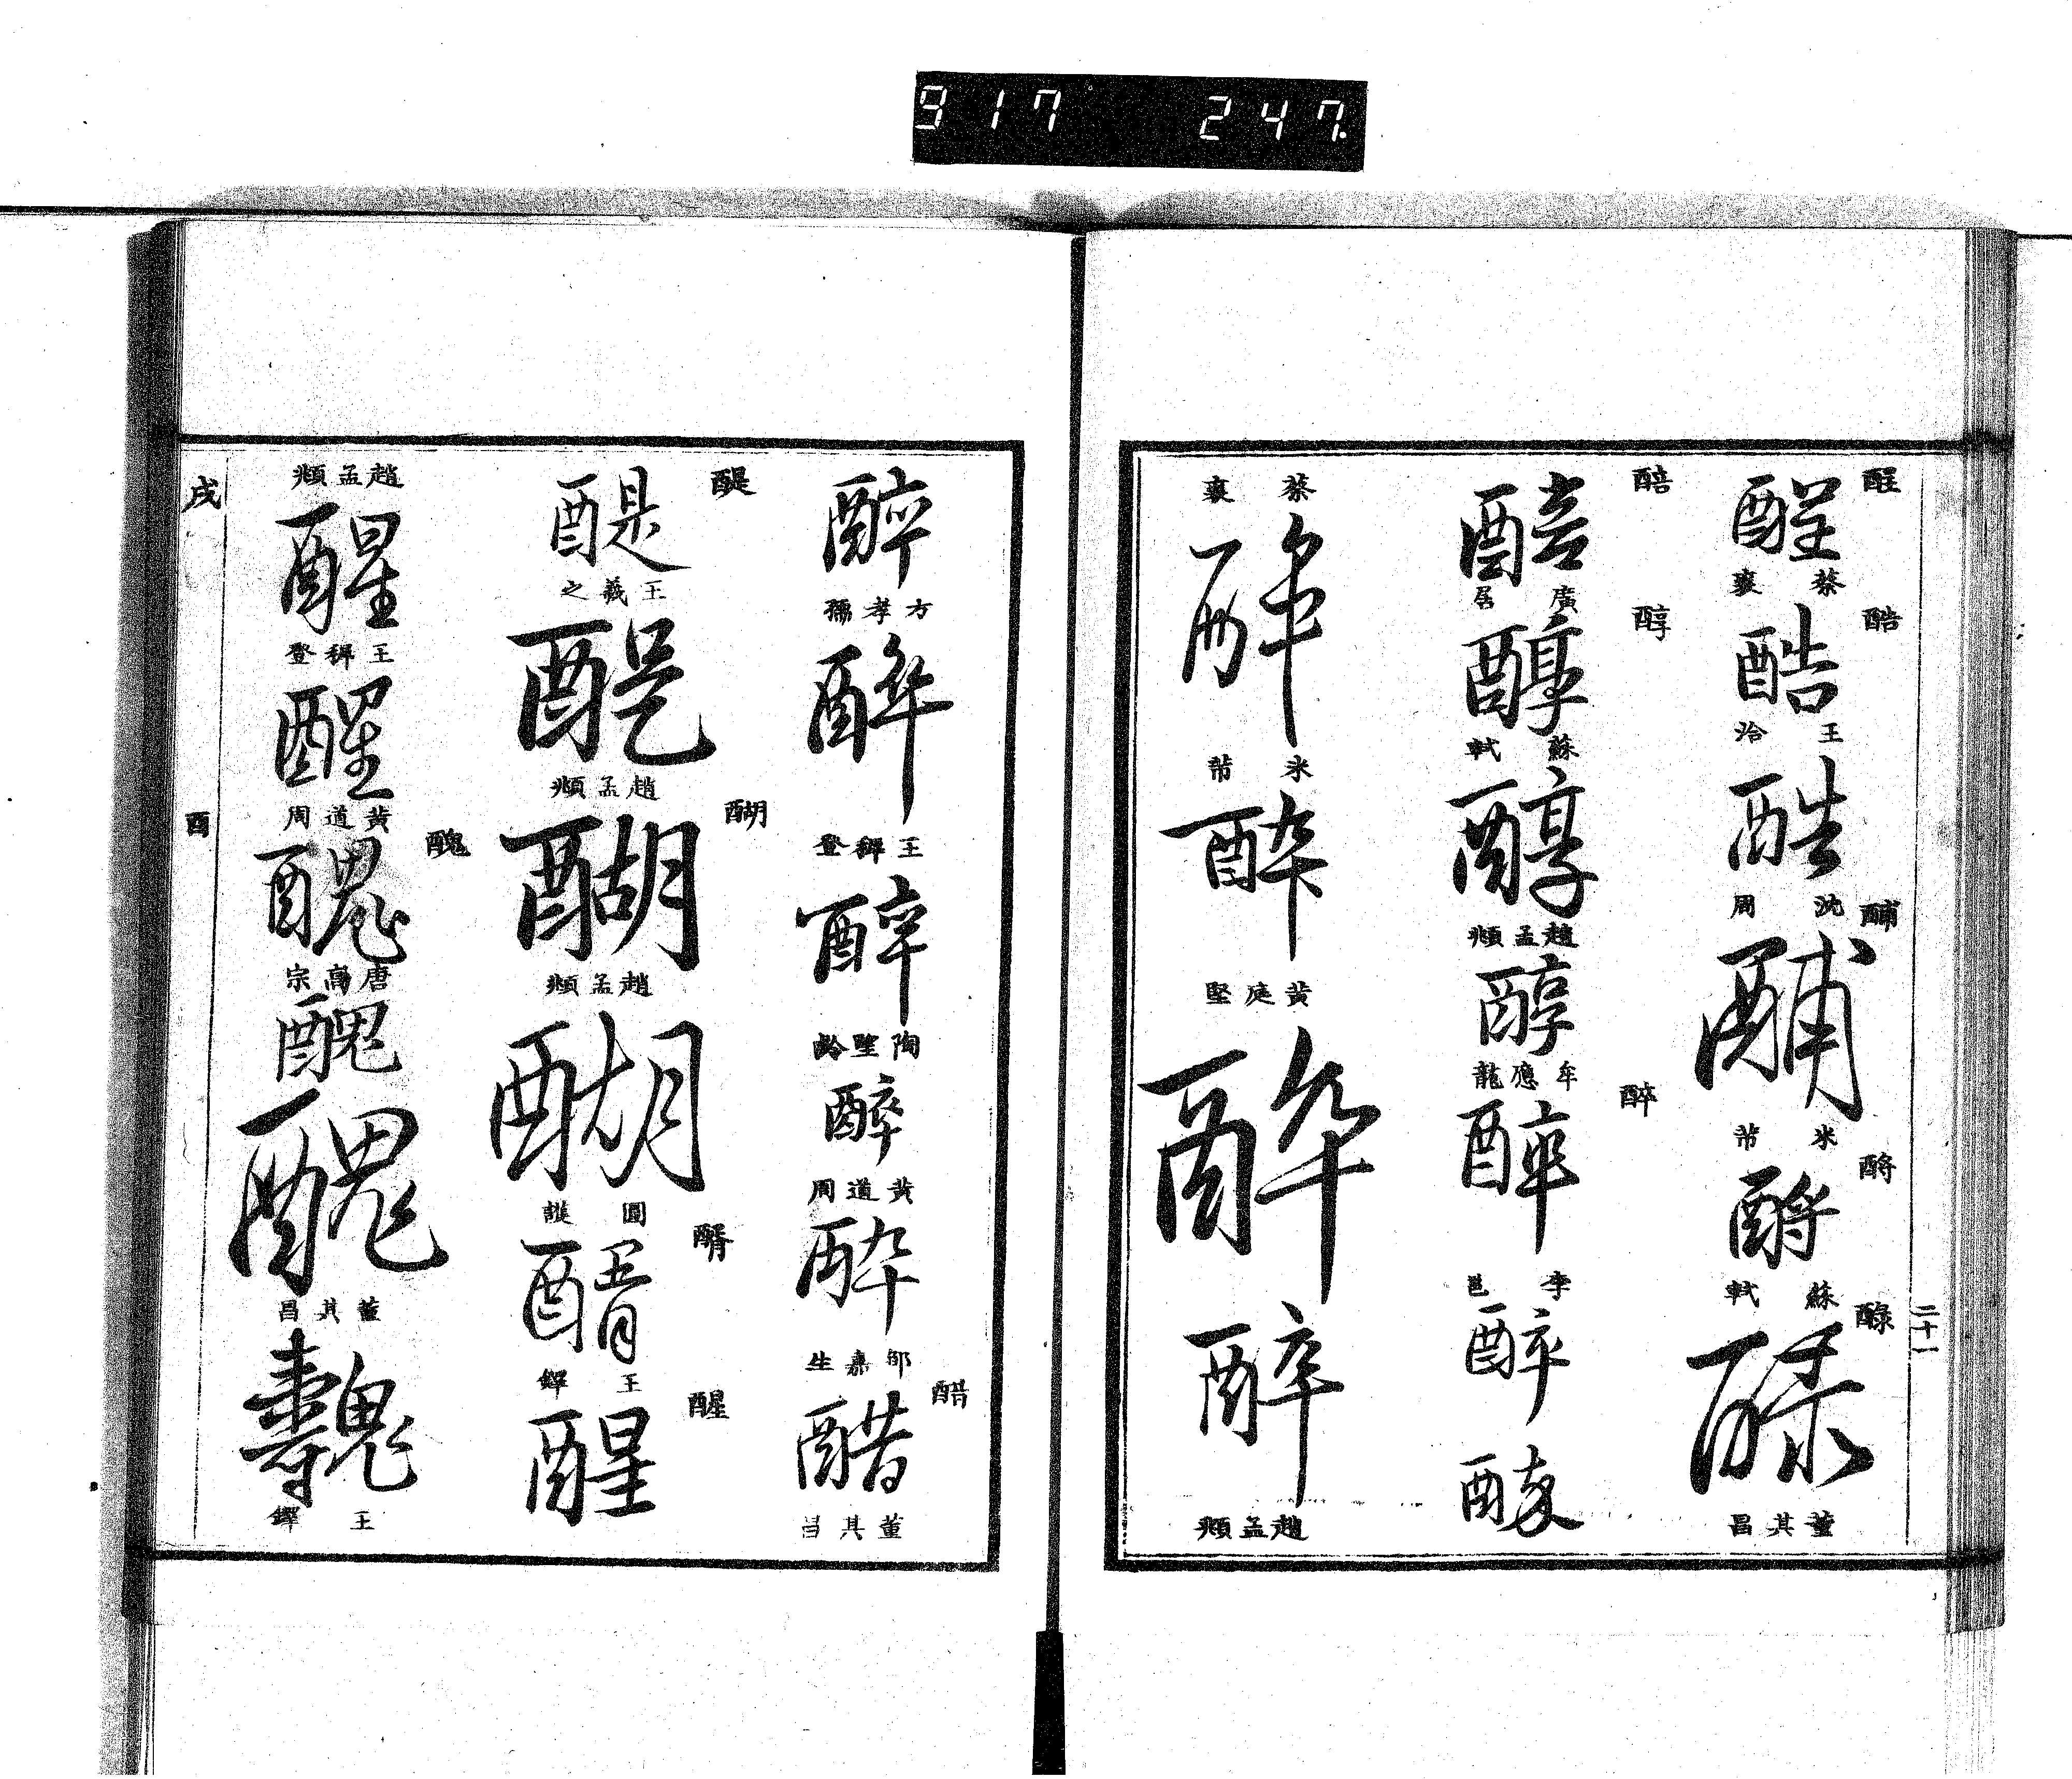 917 247.
二十一
酲
酲
蔡襄
酷
酷
王洽
酷
沈周
酺
酺
米芾
酹
酹
蘇軾
醁
醁
董其昌
醅
醅
廣居
醇
醇
蘇軾
醇
趙孟頫
醇
牟應龍
醉
醉
李邕
醉
醉
蔡襄
醉
米芾
醉
黃庭堅
醉
醉
趙孟頫
醉
方孝孺
醉
王穉登
醉
陶望齡
醉
黃道周
醉
鄒嘉生
醋
醋
董其昌
醍
醍
王羲之
醍
趙孟頫
醐
醐
趙孟頫
醐
圓護
醑
醑
王鐸
醒
醒
趙孟頫
醒
王穉登
醒
黃道周
醜
醜
唐高宗
醜
醜
董其昌
王鐸
戌
酉